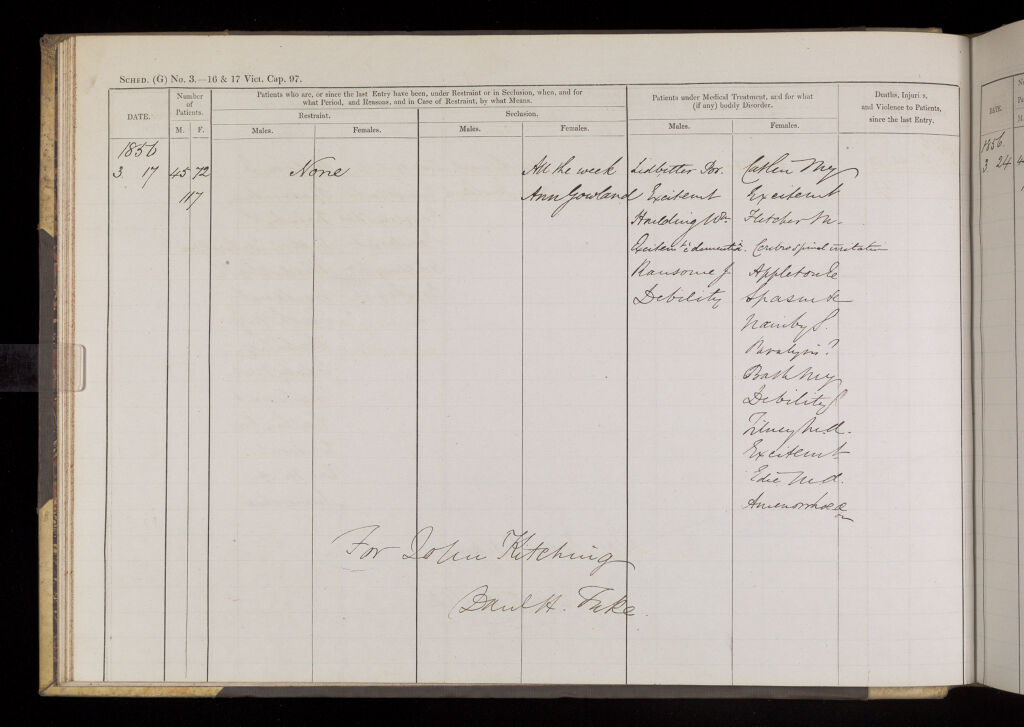 SCHED. (G) No. 3.—16 & 17 Vict. Cap. 97.
DATE.
Number of Patients.
M. F.
Patients who are, or since the last Entry have been, under Restraint or in Seclusion, when, and for
what Period, and Reasons, and in Case of Restraint, by what Means.
Restraint.
Seclusion.
Males. Females. Males. Females.
Patients under Medical Treatment, and for what
(if any) bodily Disorder.
Males. Females.
Deaths, Injuries,
and Violence to Patients,
since the last Entry.
1856
3 17 45 72 None All the week Ledbitter Dor.
117 Ann Gowland Excitemt Excitemt
Harlding Wm Fletcher M.
Excitem & dementia. Cerebro spinal irritation
Ransome J Appleton E
Debility Spasm &c
Naimby S.
Paralysis?
Bath My
Debility
M.d.
Excitemt
Edie M.d.
Amenorrhoea
For John Kitching
H.
DATE.
1856.
3 24